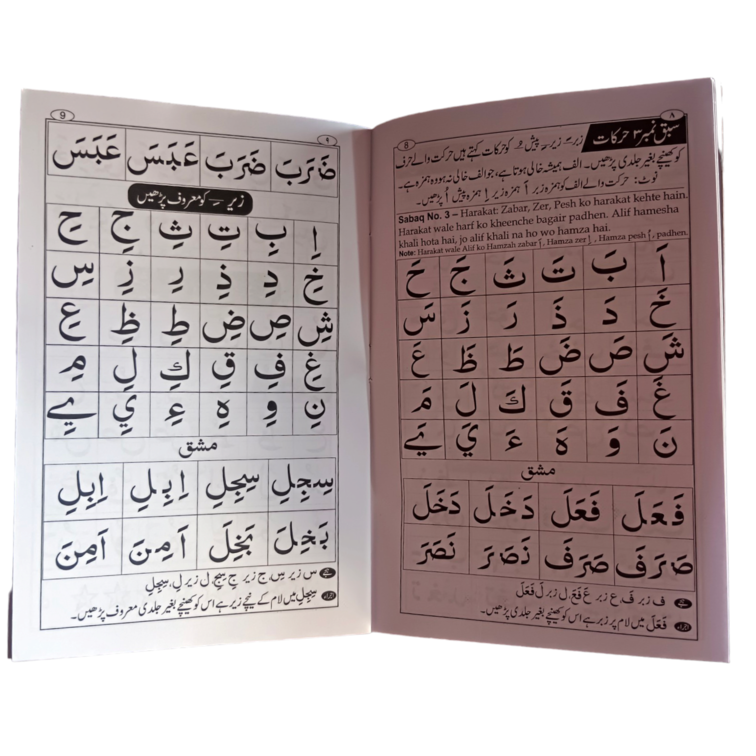 ۸
8
سبق نمبر ۳ حرکات زبر ـَ زیر ـِ پیش ـُ کو حرکات کہتے ہیں حرکت والے حرف
کو کھینچے بغیر جلدی پڑھیں۔ الف ہمیشہ خالی ہوتا ہے، جو الف خالی نہ ہو وہ ہمزہ ہے۔
نوٹ: حرکت والے الف کو ہمزہ زبر اَ ہمزہ زیر اِ ہمزہ پیش اُ پڑھیں۔
Sabaq No. 3 – Harakat: Zabar, Zer, Pesh ko harakat kehte hain.
Harakat wale harf ko kheenche bagair padhen. Alif hamesha
khali hota hai, jo alif khali na ho wo hamza hai.
Note: Harakat wale Alif ko Hamzah zabar اَ, Hamza zer اِ, Hamza pesh اُ, padhen.
اَ بَ تَ ثَ جَ حَ
خَ دَ ذَ رَ زَ سَ
شَ صَ ضَ طَ ظَ عَ
غَ فَ قَ كَ لَ مَ
نَ وَ هَ ءَ يَ يَے
مشق
فَعَلَ فَعَلَ دَخَلَ دَخَلَ
صَرَفَ صَرَفَ نَصَرَ نَصَرَ
ف زبر فَ، ع زبر عَ فَعَ، ل زبر لَ فَعَلَ
فَعَلَ میں لام پر زبر ہے اس کو کھینچے بغیر جلدی پڑھیں۔
۹
9
ضَرَبَ ضَرَبَ عَبَسَ عَبَسَ
زیر ـِ کو معروف پڑھیں
اِ بِ تِ ثِ جِ حِ
خِ دِ ذِ رِ زِ سِ
شِ صِ ضِ طِ ظِ عِ
غِ فِ قِ كِ لِ مِ
نِ وِ هِ ءِ يِ يِے
مشق
سِجِلِ سِجِلِ اِبِلِ اِبِلِ
بَخِلَ بَخِلَ اَمِنَ اَمِنَ
س زیر سِ، ج زیر جِ سِجِ، ل زیر لِ، سِجِلِ
سِجِلِ میں لام کے نیچے زیر ہے اس کو کھینچے بغیر جلدی معروف پڑھیں۔